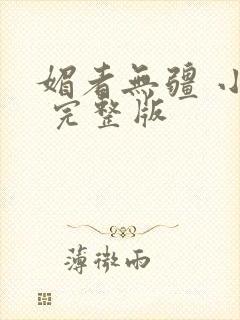 媚者無疆 小
完整版
薄微雨